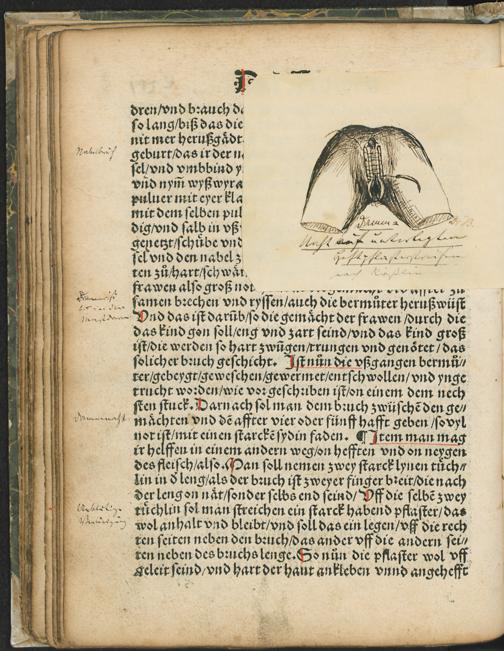 dren/vnd brauch de
so lang/biß das die
nit mer herußgådt
geburt/das ir der n
sel/vnd vmbbind
vnd nym wyß wyra
puluer mit eyer kla
mit dem selben pul
dig/vnd salb in vß
genetzt/schübe vnd
sel vnd den nabel z
ten zů/hart/schwåt
frawen also groß not
samen brechen vnd ryssen/auch die bermůter heruß wüst
Vnd das ist darüb/so die gemåcht der frawen/durch die
das kind gon soll/eng vnd zart seind/vnd das kind groß
ist/die werden so hart zwügen/trungen vnd genötet/das
solicher bruch geschicht. Ist nün die vßgangen bermů/
ter/gebeygt/geweschen/gewermet/entschwollen/vnd ynge
truckt worden/wie vor geschriben ist/on einem dem nech
sten stuck. Darnach sol man dem bruch zwüschē den ge/
måchten vnd dē affter vier oder fünff hafft geben/so vyl
not ist/mit einen starckē sydin faden. ¶ Item man mag
ir helffen in einem andern weg/on hefften vnd on neygen
des fleisch/also. Man soll nemen zwey starck lynen tüch/
lin in d̄ leng/als der bruch ist zweyer finger breit/die nach
der leng on nåt/sonder selbs end seind/Vff die selbē zwey
tüchlin sol man streichen ein starck habend pflaster/das
wol anhalt vnd bleibt/vnd soll das ein legen/vff die rech
ten seiten neben den bruch/das ander vff die andern sei/
ten neben des bruchs lenge. So nün die pflaster wol vff
geleit seind/vnd hart der haut ankleben vnnd angehefft
Nabelbruch
Dammnaht
Damm
Naht auf unterlegten
Heftpflasterstreifen
nach Rößlin